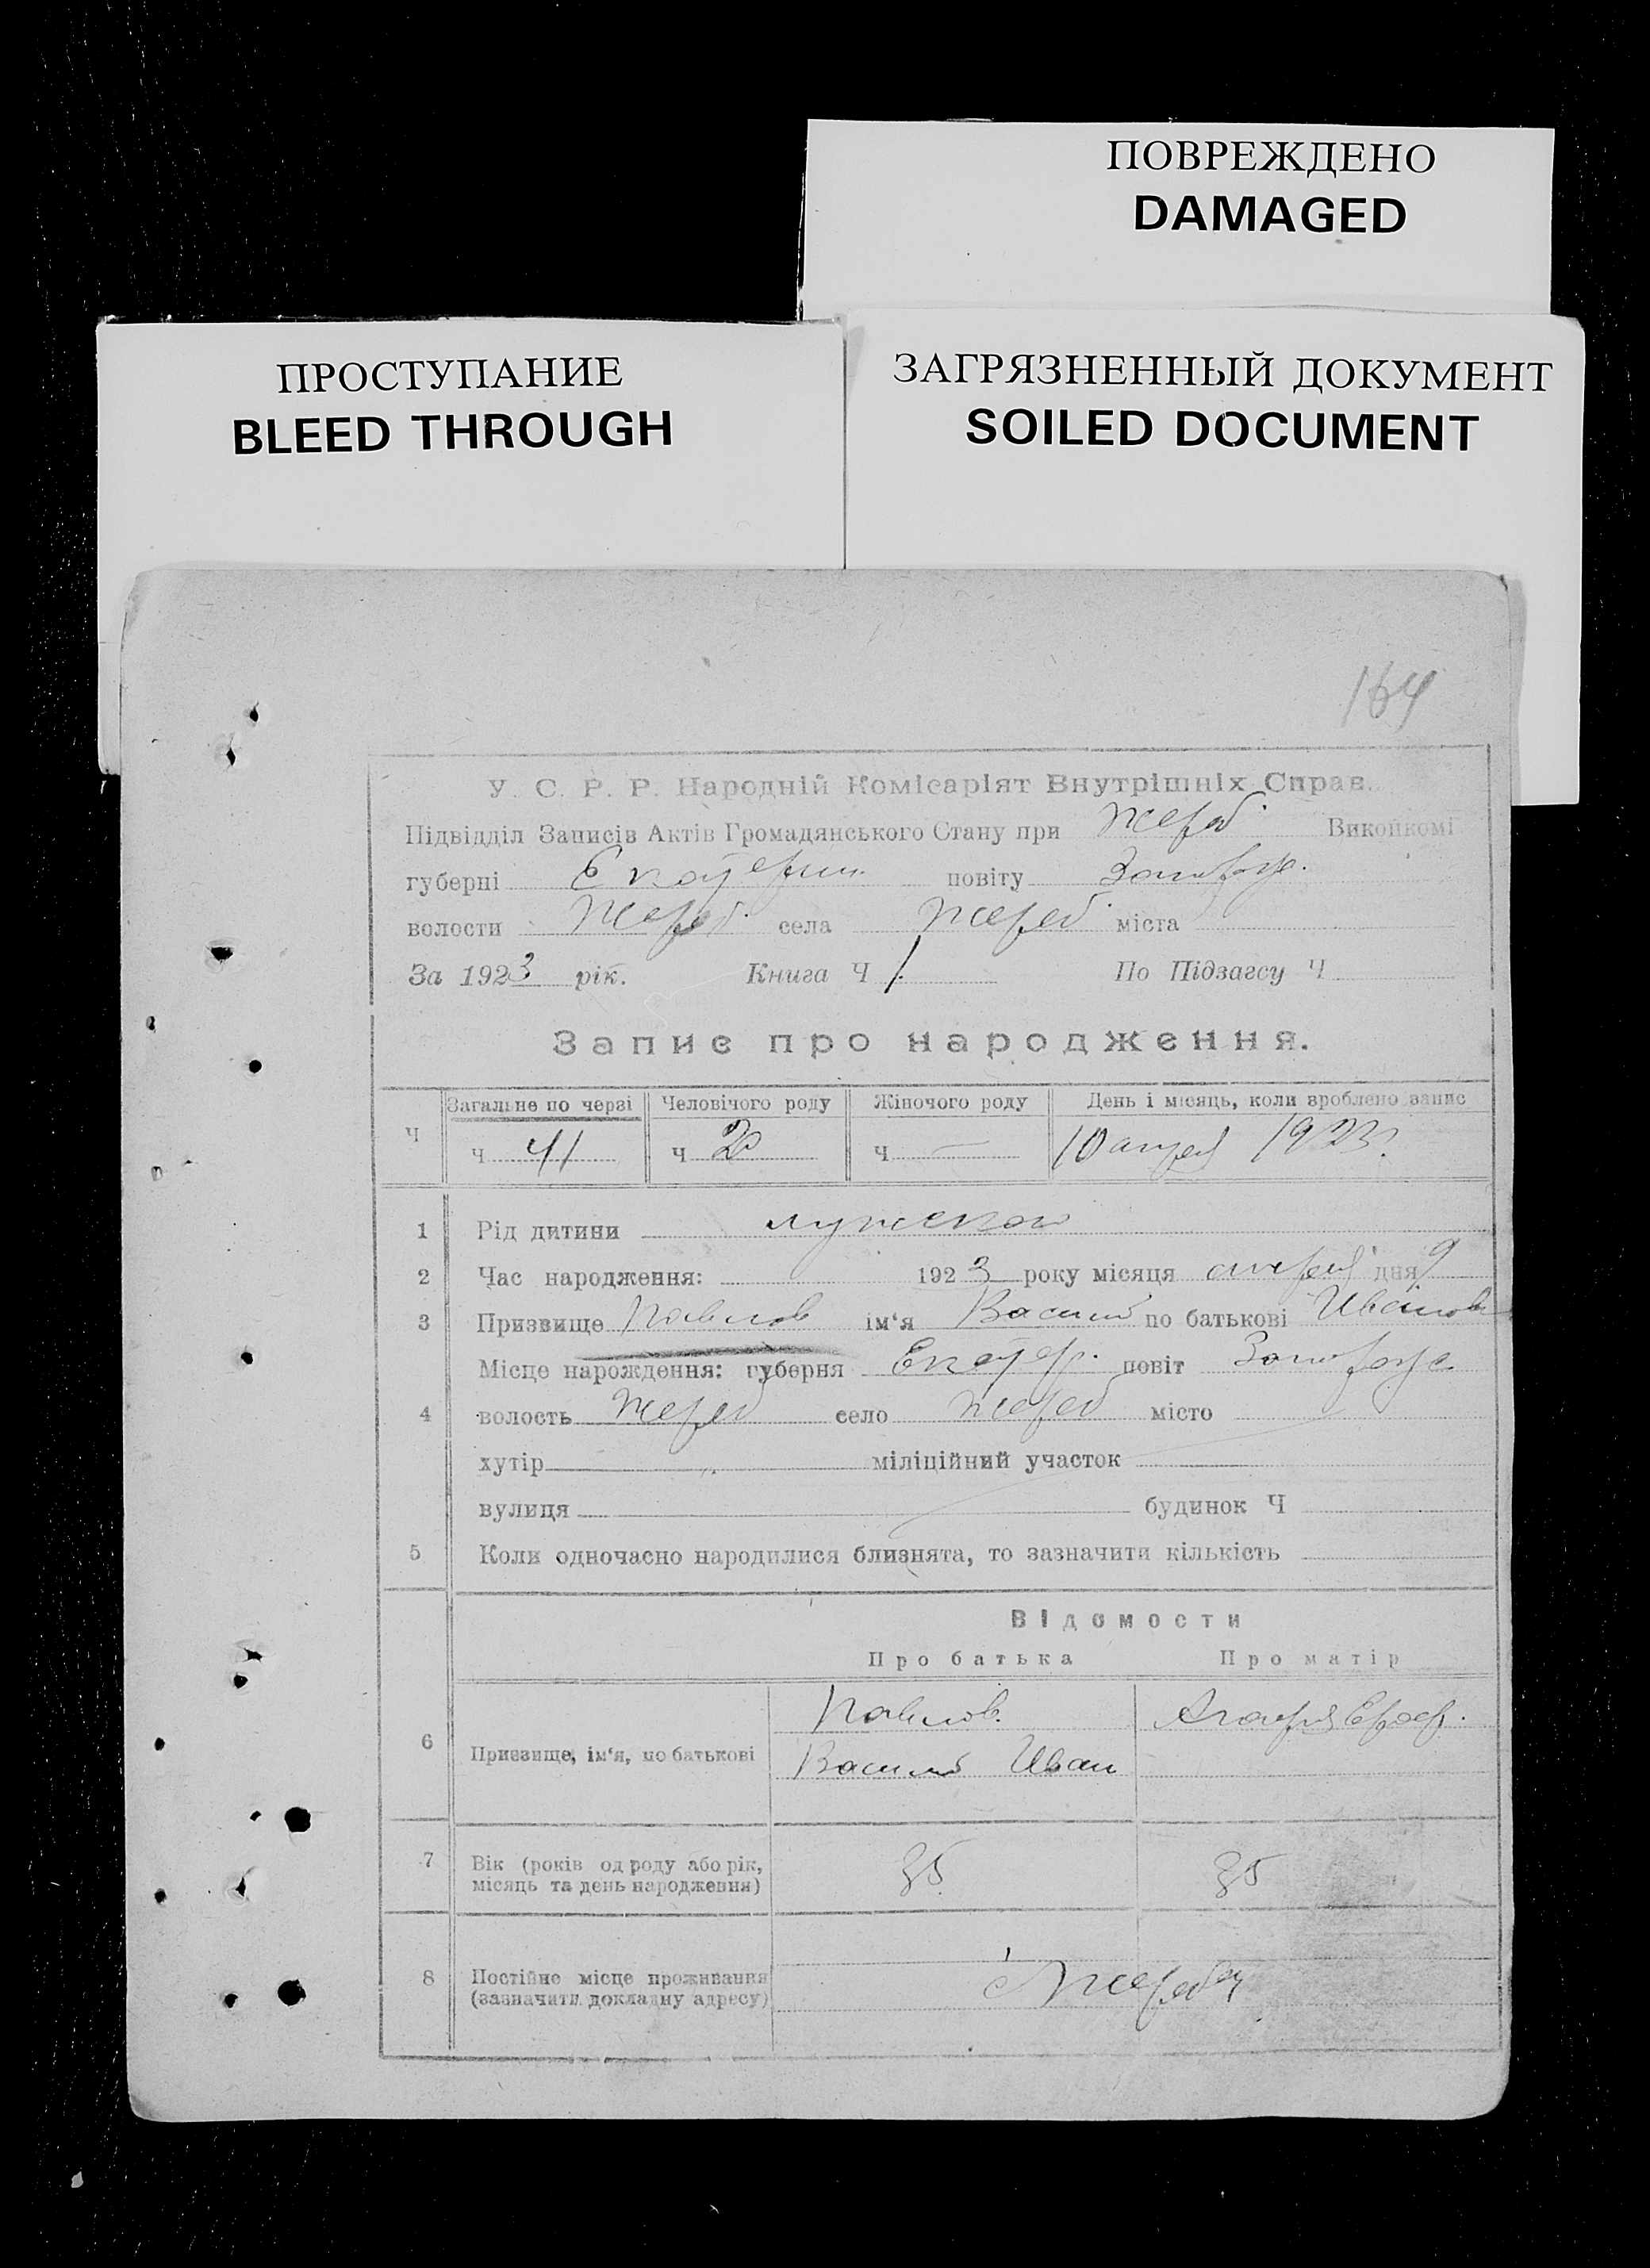 ПОВРЕЖДЕНО
DAMAGED
ПРОСТУПАНИЕ
BLEED THROUGH
ЗАГРЯЗНЕННЫЙ ДОКУМЕНТ
SOILED DOCUMENT
164
У. С. Р. Р. Народній Комісаріят Внутрішніх Справ.
Підвідділ Записів Актів Громадянського Стану при Жереб. Виконкомі
губерні Екатерин. повіту Запорож.
волости Жереб. села Жереб. міста
За 1923 рік. Книга Ч 1. По Підзагсу Ч
Запис про народження.
Загальне по черзі Человічого роду Жіночого роду День і місяць, коли вроблено запис
Ч ч 41 ч 20 ч — 10 апреля 1923.
1 Рід дитини мужской
2 Час народження: 1923 року місяця апреля дня 9
3 Призвище Павлов ім'я Василий по батькові Иванов
Місце народження: губерня Екатер. повіт Запорож.
4 волость Жереб село Жереб місто
хутір „ міліційний участок
вулиця будинок Ч
5 Коли одночасно народилися близнята, то зазначити кількість
Відомости
Про батька Про матір
6 Призвище, ім'я, по батькові Павлов.
Василий Иван
7 Вік (років од роду або рік, місяць та день народження) 35 35
8 Постійне місце проживання (зазначити докладну адресу) с Жеребец